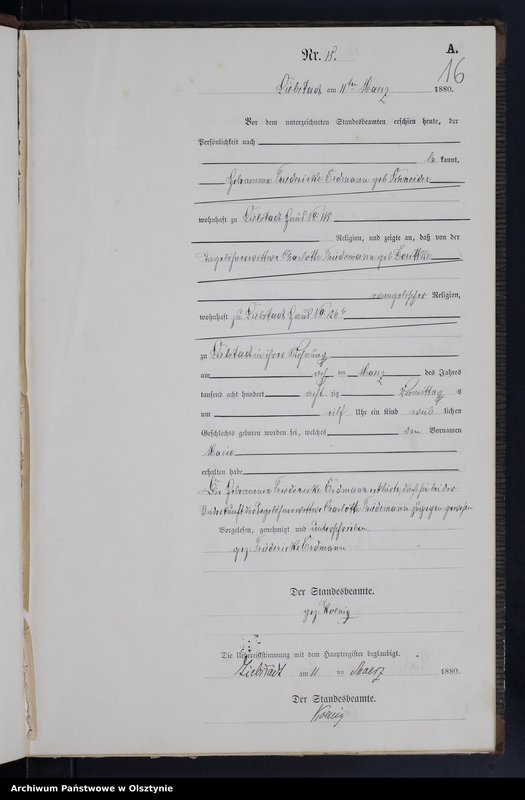 Nr. 15.
A.
16
Liebstadt am 11ten Maerz 1880.
Vor dem unterzeichneten Standesbeamten erschien heute, der
Persönlichkeit nach
be kannt,
Hebamme Friedericke Erdmann geb. Schneider
wohnhaft zu Liebstadt Haus No
Religion, und zeigte an, daß von der
Tagelöhnerwittwe Charlotte Friedemann geb.
evangelischer Religion,
wohnhaft zu Liebstadt Haus No 126
zu Liebstadt in ihrer Wohnung
am ten Maerz des Jahres
tausend acht hundert acht zig Vormittag s
um eilf Uhr ein Kind weib lichen
Geschlechts geboren worden sei, welches den Vornamen
Marie
erhalten habe
Die Hebamme Friedericke Erdmann erklärte, daß sie bei der
Niederkunft der Tagelöhnerwittwe Charlotte Friedemann zugegen gewesen
Vorgelesen, genehmigt und unterschrieben
gez. Friedericke Erdmann
Der Standesbeamte.
gez. Koenig
Die Uebereinstimmung mit dem Hauptregister beglaubigt.
Liebstadt am 11 ten Maerz 1880.
Der Standesbeamte.
Koenig
Archiwum Państwowe w Olsztynie